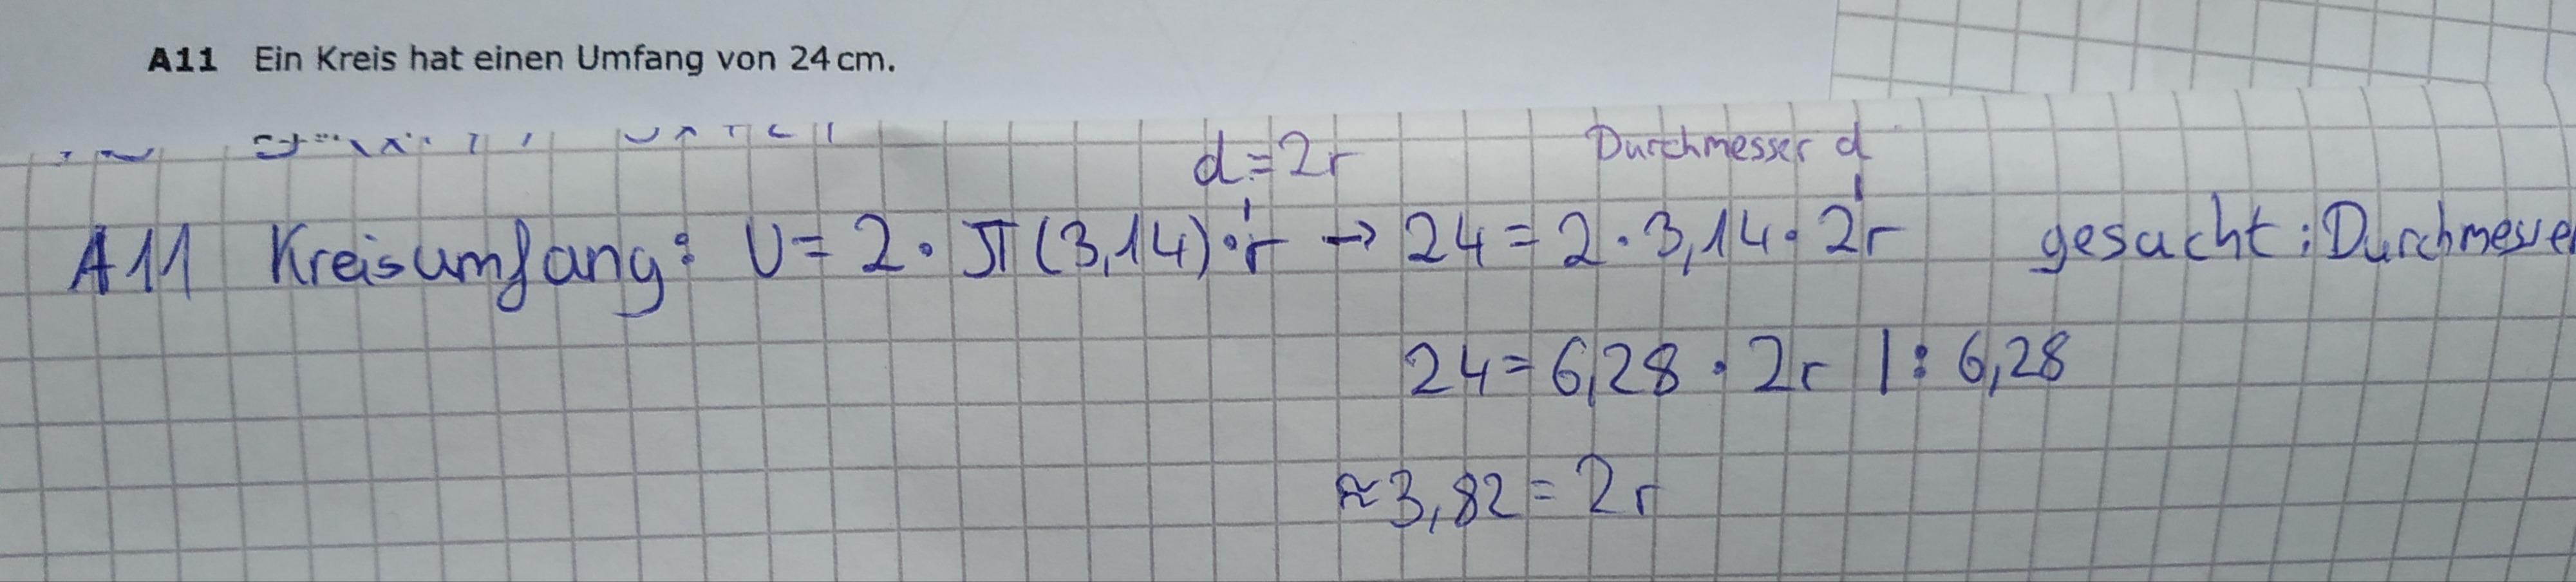 A11 Ein Kreis hat einen Umfang von 24 cm.
d=2r Durchmesser d
A11 Kreisumfang: U = 2 · π (3,14) · r → 24 = 2 · 3,14 · 2r gesucht: Durchmesser
24 = 6,28 · 2r | : 6,28
≈ 3,82 = 2r